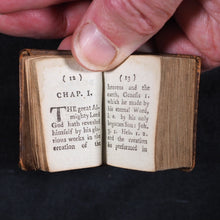 ( 12 )
CHAP. I.
THE great Al-
mighty Lord
God hath revealed
himself by his glo-
rious works in the
creation of the
( 13 )
heavens and the
earth, Genesis 1.
which he made by
his eternal Word,
1. 2. and by his only
begotten Son: Joh.
9. 2. Heb. 1. 2.
and the creation
is preserved in